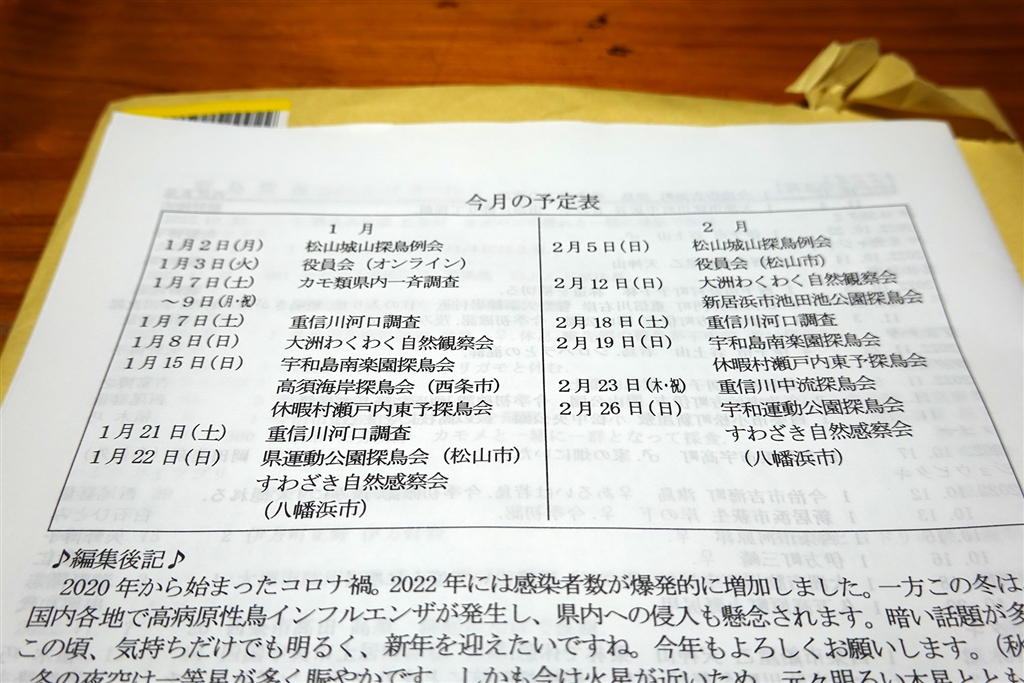 今月の予定表
1 月
1月2日(月) 松山城山探鳥例会
1月3日(火) 役員会（オンライン）
1月7日(土) カモ類県内一斉調査
～9日(月・祝)
1月7日(土) 重信川河口調査
1月8日(日) 大洲わくわく自然観察会
1月15日(日) 宇和島南楽園探鳥会
高須海岸探鳥会（西条市）
休暇村瀬戸内東予探鳥会
1月21日(土) 重信川河口調査
1月22日(日) 県運動公園探鳥会（松山市）
すわざき自然感察会
(八幡浜市)
2 月
2月5日(日) 松山城山探鳥例会
役員会（松山市）
2月12日(日) 大洲わくわく自然観察会
新居浜市池田池公園探鳥会
2月18日(土) 重信川河口調査
2月19日(日) 宇和島南楽園探鳥会
休暇村瀬戸内東予探鳥会
2月23日(木・祝) 重信川中流探鳥会
2月26日(日) 宇和運動公園探鳥会
すわざき自然感察会
(八幡浜市)
♪編集後記♪
2020年から始まったコロナ禍。2022年には感染者数が爆発的に増加しました。一方この冬は、
国内各地で高病原性鳥インフルエンザが発生し、県内への侵入も懸念されます。暗い話題が多
この頃、気持ちだけでも明るく、新年を迎えたいですね。今年もよろしくお願いします。（秋
冬の夜空は一等星が多く賑やかです。しかも今は火星が近いため、元々明るい木星ととも